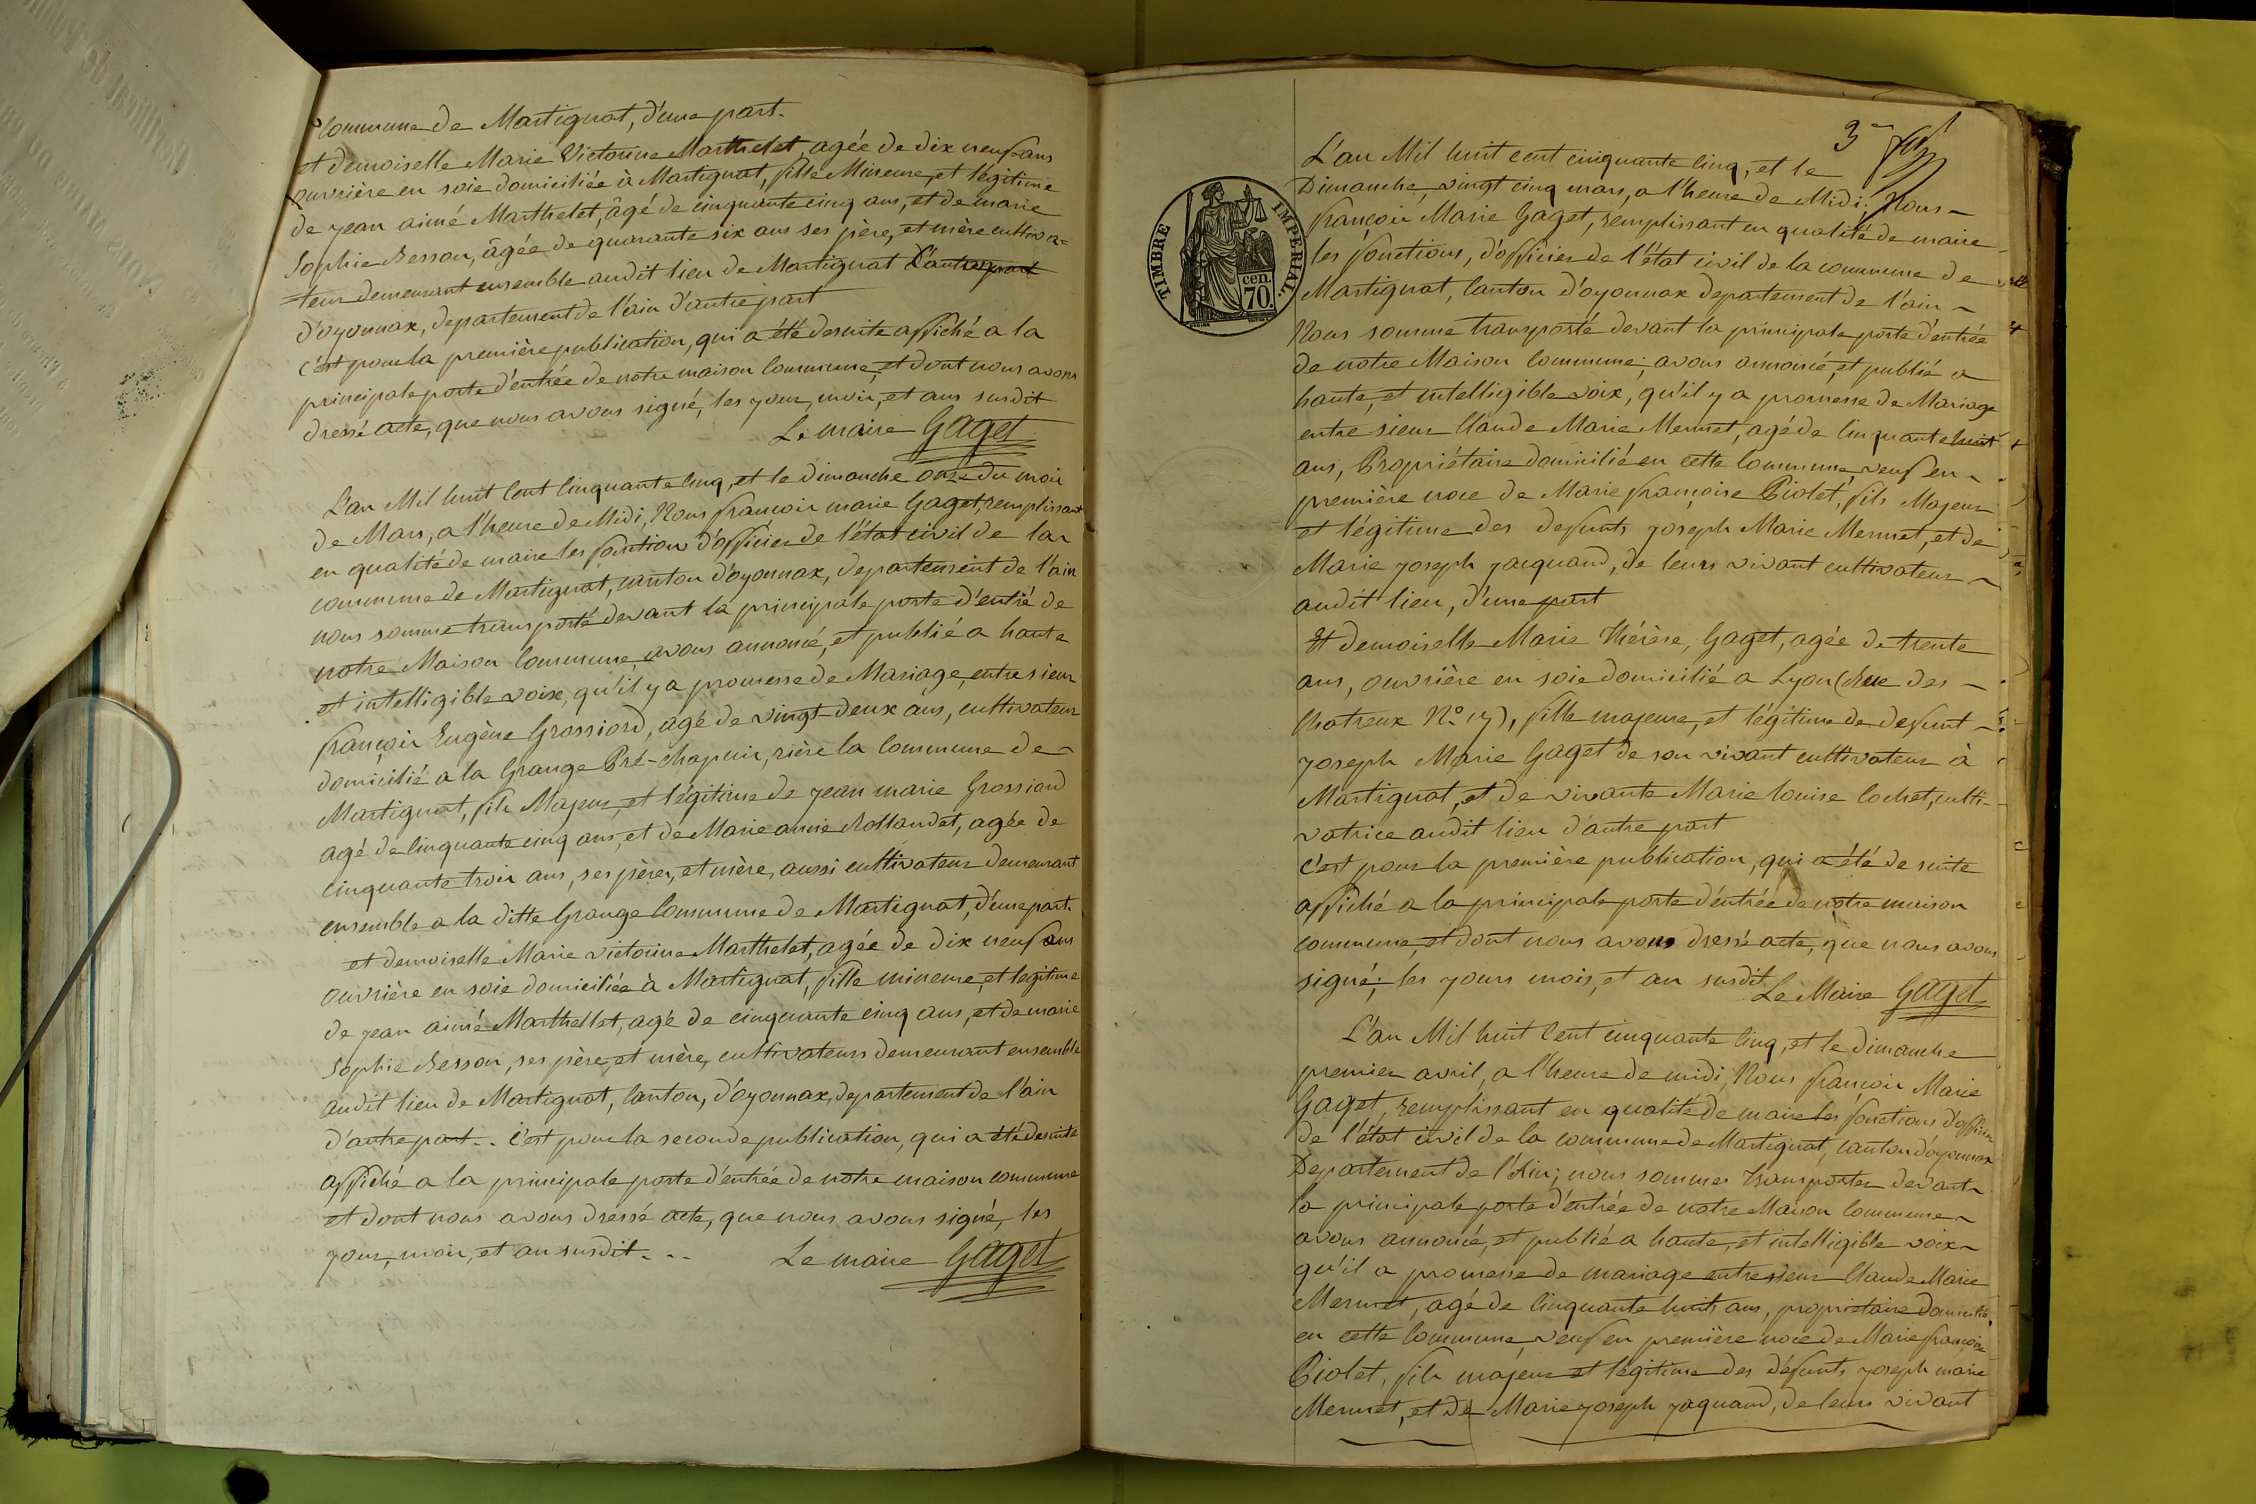 commune de Martignat, d'une part.
et demoiselle Marie Victorine Marthelet, agée de dix neuf ans
ouvrière en soie domiciliée à Martignat, fille Mineure, et légitime
de jean aimé Marthelet, âgé de cinquante cinq ans, et de marie
Sophie Besson, âgée de quarante six ans ses père, et mère cultiva=
=teur demeurant ensemble audit lieu de Martignat D'autre part
d'oyonnax, departement de l'ain d'autre part
c'est pour la première publication, qui a été desuite affiché a la
principale porte d'éntrée de notre maison Commune, et dont nous avons
dressé acte, que nous avons signé, les jour, mois, et ans susdit
Le maire Gaget
L'an Mil huit Cent Cinquante Cinq, et le dimanche onze du mois
de Mars, a l'heure de Midi, Nous francois marie Gaget, remplissant
en qualité de maire les fonction d'officier de l'état civil de la
commune de Martignat, canton d'oyonnax, departement de l'ain
nous somme transporté devant la principale porte d'entré de
notre Maison Commune, avons annoncé, et publié a haute
et intelligible voix, qu'il y a promesse de Mariage, entre sieur
françois Eugène Grossiord, agé de vingt-deux ans, cultivateur
domicilié a la Grange Pré-chapuis, rière la Commune de
Martignat, fils Majeur, et légitime de jean marie Grossiord
agé de Cinquante cinq ans, et de Marie anne Rollandet, agée de
Cinquante trois ans, ses père, et mère, aussi cultivateur demeurant
ensemble a la ditte Grange Commune de Martignat, d'une part.
et demoiselle Marie victorine Marthelet, agée de dix neuf ans
ouvrière en soie domiciliée à Martignat, fille mineure, et legitime
de jean aimé Marthellet, agé de cinquante cinq ans, et de marie
Sophie Besson, ses père, et mère, cultivateurs demeurant ensemble
audit lieu de Martignat, Canton, d'oyonnax, departement de l'ain
d'autre part. . C'est pour la seconde publication, qui a été desuite
affiché a la principale porte d'éntrée de notre maison commune
et dont nous avons dressé acte, que nous avons signé, les
jour, mois, et an susdit . .
Le maire Gaget
3e
TIMBRE IMPERIAL.
cen.
70.
L'an Mil huit cent cinquante Cinq, et le
Dimanche, vingt cinq mars, a l'heure de Midi; Nous
françois Marie Gaget, remplissant en qualité de maire
les fonctions, d'officier de l'état civil de la commune de
Martignat, Canton d'oyonnax departement de l'ain
Nous somme transporté devant la principale porte d'éntrée
de notre Maison Commune; avons annoncé, et publié a
haute, et intelligible voix, qu'il y a promesse de Mariage
entre sieur Claude Marie Mermet, agé de Cinquante huit
ans, Propriétaire domicilié en cette Commune, veuf en
première noce de Marie françoise Piolet, fils Majeur
et légitime des defunts joseph Marie Mermet, et de
Marie joseph jacquand, de leurs vivant cultivateur
audit lieu, d'une part
Et demoiselle Marie Thérèse, Gaget, agée de trente
ans, ouvrière en soie domicilié a Lyon (Rue des
Chatreux No 17), fille majeure, et légitime de defunt
joseph Marie Gaget de son vivant cultivateur à
Martignat, et de vivante Marie louise Cochet, culti-
vatrice audit lieu d'autre part
C'est pour la première publication, qui a été de suite
affiché a la principale porte d'éntrée de notre maison
commune, et dont nous avons dressé acte, que nous avons
signé; les jours mois, et an susdit
Le Maire Gaget
L'an Mil huit Cent cinquante Cinq, et le dimanche
premier avril, a l'heure de midi, Nous francois Marie
Gaget, remplissant en qualité de maire les fonctions d'officier
de l'état civil de la commune de Martignat, canton d'oyonnax
Departement de l'Ain; nous sommes transporter devant
la principale porte d'éntrée de notre Maison Commune
avons annoncé, et publié a haute, et intelligible voix
qu'il a promesse de mariage entre sieur Claude Marie
Mermet, agé de Cinquante huit ans, propriétaire domicilié
en cette Commune, veuf en première noce de Marie françoise
Piolet, fils majeur et légitime des défunts joseph marie
Mermet, et de Marie joseph jaquand, de leurs vivant